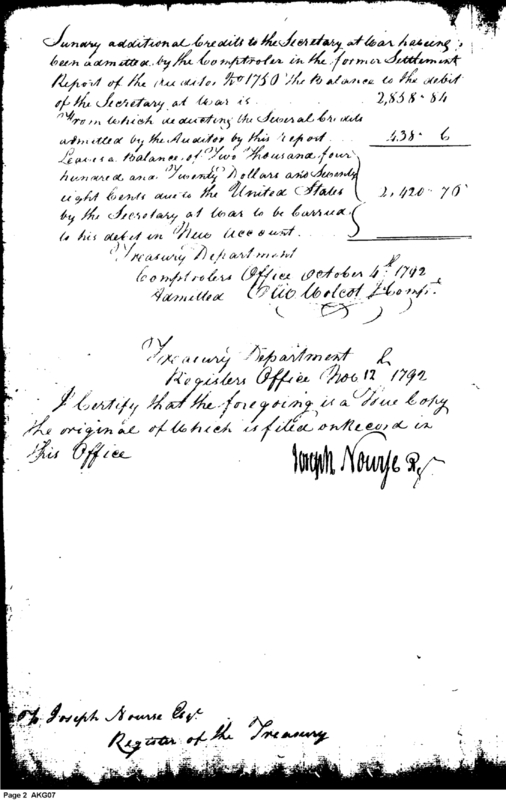 Sundry additional Credits to the Secretary at War having
been admitted by the Comptroler in the former Settlement
Report of the Auditor No 1750 the Balance to the debit
of the Secretary at War is 2,858-84
From which deducting the Several Credits
admitted by the Auditor by this report 438- 6
Leaves a Balance of Two Thousand four
hundred and Twenty Dollars and Seventy
eight Cents due to the United States 2,420-78
by the Secretary at War to be Carried
to his debit in New Account.
Treasury Department
Comptrolers Office October 4th 1792
Admitted Oliv Wolcot Compr
Treasury Department
Registers Office Nov 12 1792
I Certify that the foregoing is a True Copy
the original of Which is filed on Record in
this Office
Joseph Nourse Regr
Joseph Nourse Esqr
Register of the Treasury
Page 2 AKG07